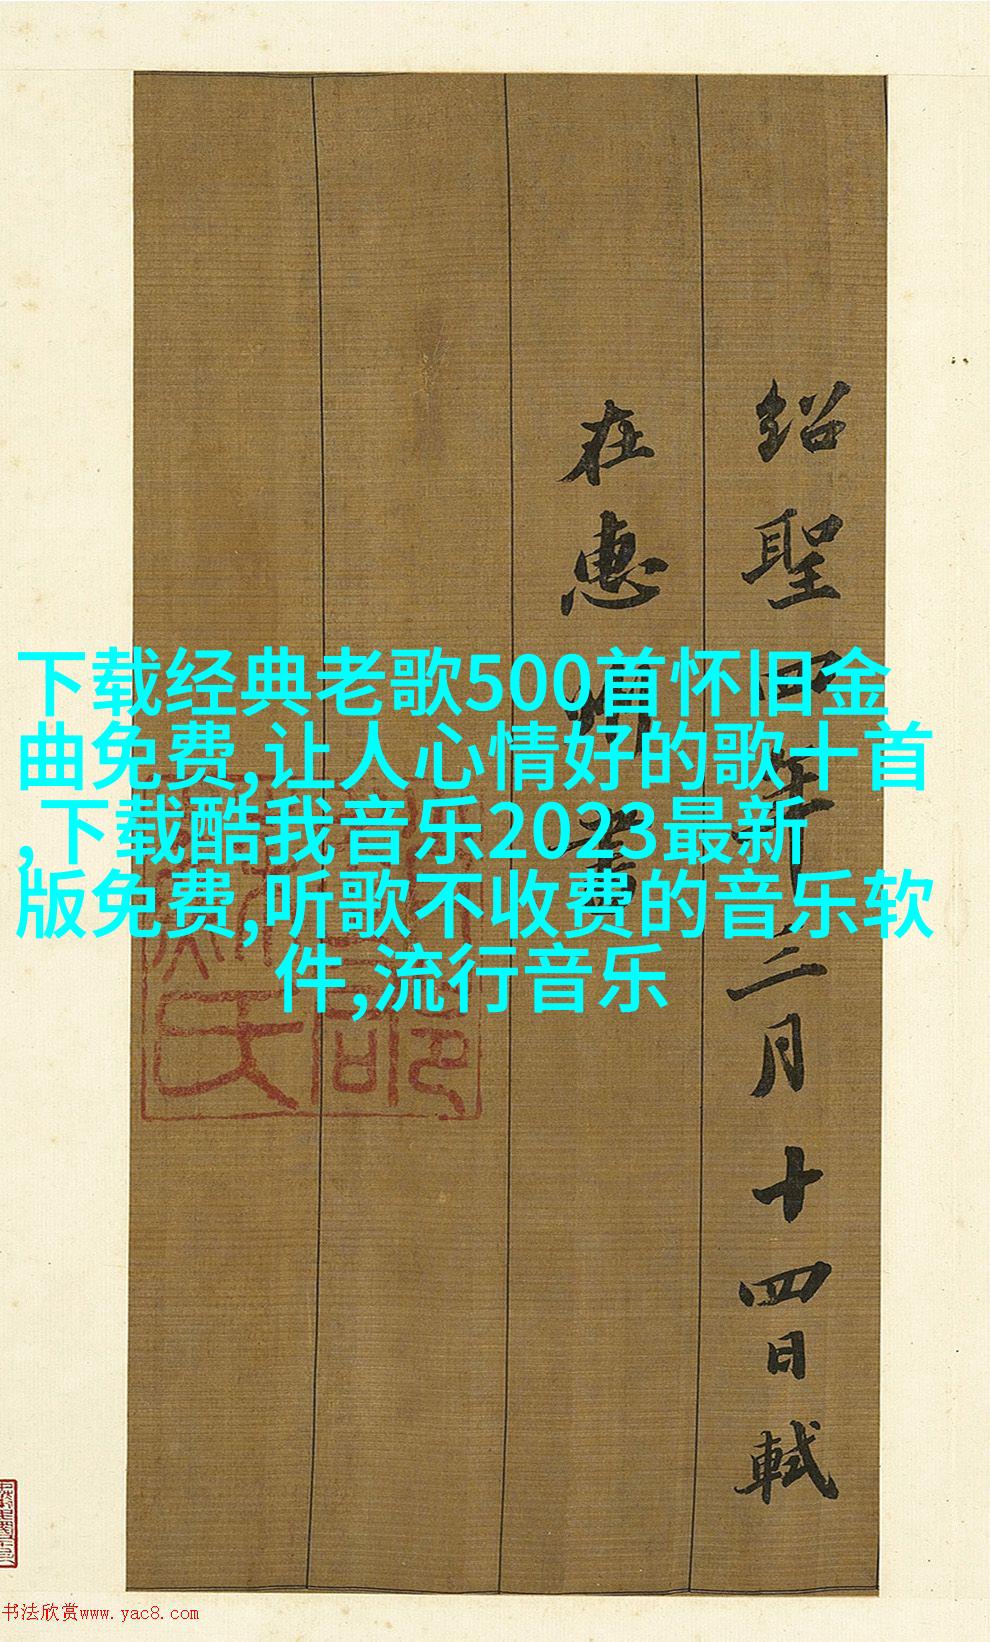 下载经典老歌500首怀旧金
曲免费,让人心情好的歌十首
,下载酷我音乐2023最新
版免费,听歌不收费的音乐软
件,流行音乐
紹聖四年二月十四日軾
在惠州書
书法欣赏www.yac8.com